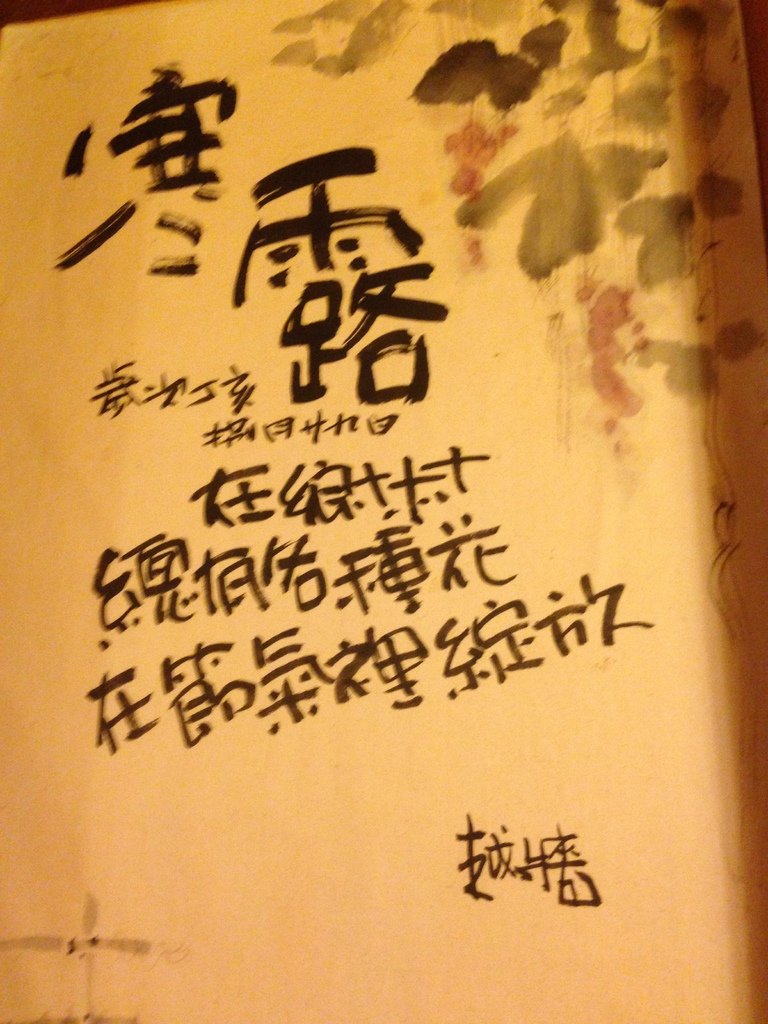 寒露
歲次丁亥
捌月廿九日
在綠村
總有佑種花
在節氣裡綻放
越牆